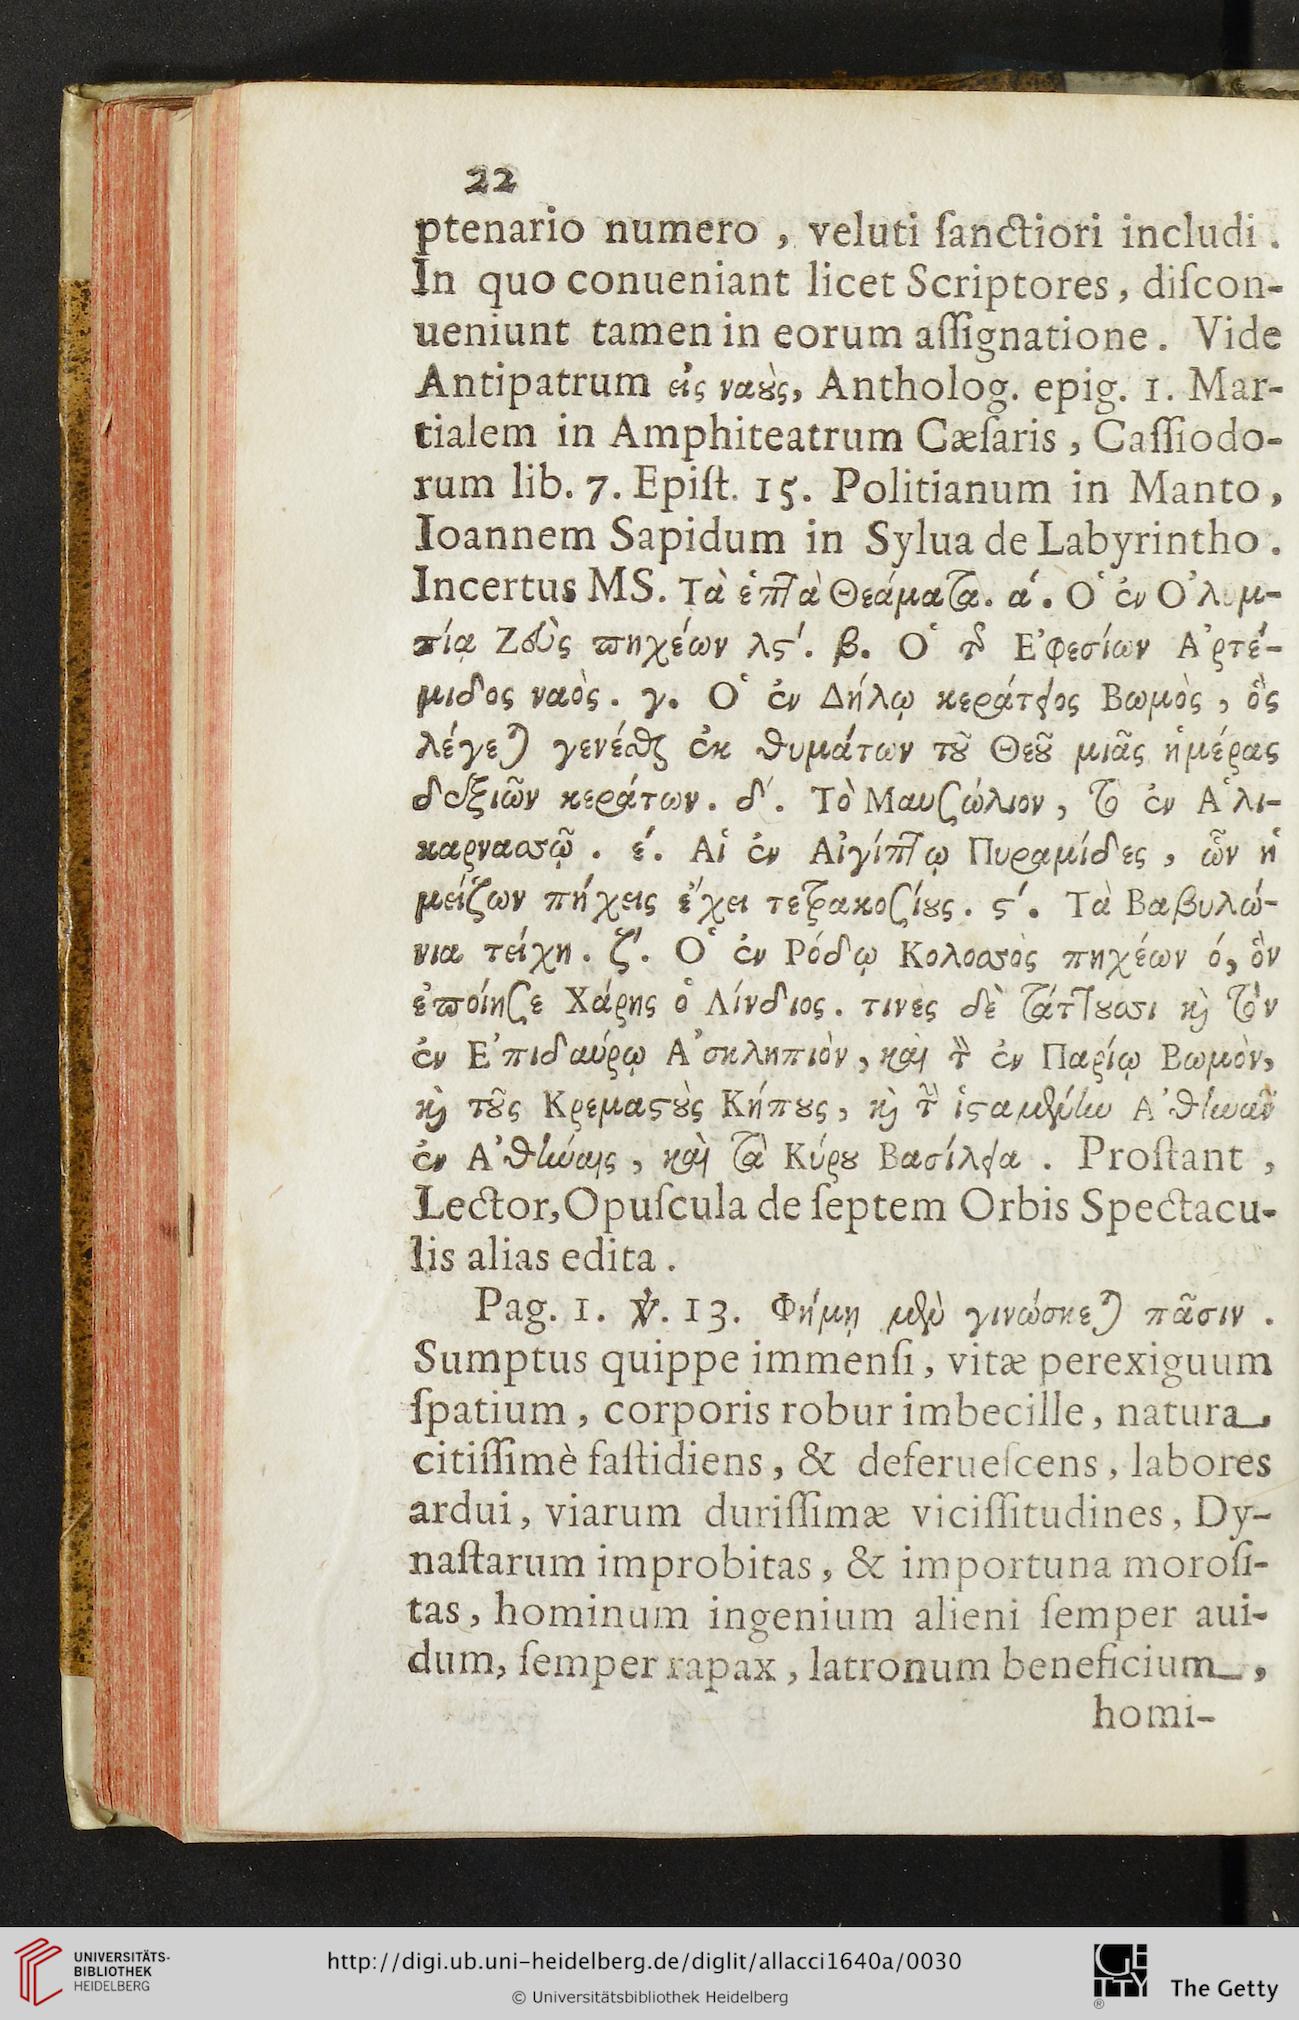 22
ptenario numero , veluti ſanctiori includi .
In quo conueniant licet Scriptores , diſcon-
ueniunt tamen in eorum aſſignatione . Vide
Antipatrum εἰς ναοὺς, Antholog. epig. 1. Mar-
tialem in Amphiteatrum Cæſaris , Caſſiodo-
rum lib. 7. Epiſt. 15. Politianum in Manto ,
Ioannem Sapidum in Sylua de Labyrintho .
Incertus MS. Τὰ ἑπτὰ Θεάματα. α΄. Ὁ ἐν Ὀλυμ-
πίᾳ Ζεὺς πηχέων λς΄. β. Ὁ τῶν Ἐφεσίων Ἀρτέ-
μιδος ναὸς . γ. Ὁ ἐν Δήλῳ κεράτειος Βωμὸς , ὃς
λέγεται γενέσθαι ἐκ θυμάτων τοῦ Θεοῦ μιᾶς ἡμέρας
δεξιῶν κεράτων . δ΄. Τὸ Μαυσώλιον , τὸ ἐν Ἁλι-
καρνασσῷ . έ. Αἱ ἐν Αἰγίπτῳ Πυραμίδες , ὧν ἡ
μείζων πήχεις ἔχει τετρακοσίους . ς΄. Τὰ Βαβυλώ-
νια τείχη . ζ΄. Ὁ ἐν Ρόδῳ Κολοσσὸς πηχέων ό, ὃν
ἐποίησε Χάρης ὁ Λίνδιος . τινὲς δὲ τάττουσι καὶ τὸν
ἐν Ἐπιδαύρῳ Ἀσκληπιὸν , καὶ τὸν ἐν Παρίῳ Βωμὸν,
καὶ τοῦς Κρεμαστοὺς Κήπους , καὶ τὴν ἱσταμένην Ἀθηνᾶν
ἐν Ἀθήναις , καὶ τὰ Κύρου Βασίλεια . Proſtant ,
Lector, Opuſcula de ſeptem Orbis Spectacu-
lis alias edita .
Pag. 1. ℣. 13. Φήμῃ μὲν γινώσκεται πᾶσιν .
Sumptus quippe immenſi , vitæ perexiguum
ſpatium , corporis robur imbecille , natura ,
citiſſimè faſtidiens , & deferueſcens , labores
ardui , viarum duriſſimæ viciſſitudines , Dy-
naſtarum improbitas , & importuna moroſi-
tas , hominum ingenium alieni ſemper aui-
dum, ſemper rapax , latronum beneficium ,
homi-
UNIVERSITÄTS-
BIBLIOTHEK
HEIDELBERG
http://digi.ub.uni-heidelberg.de/diglit/allacci1640a/0030
© Universitätsbibliothek Heidelberg
GETTY
®
The Getty